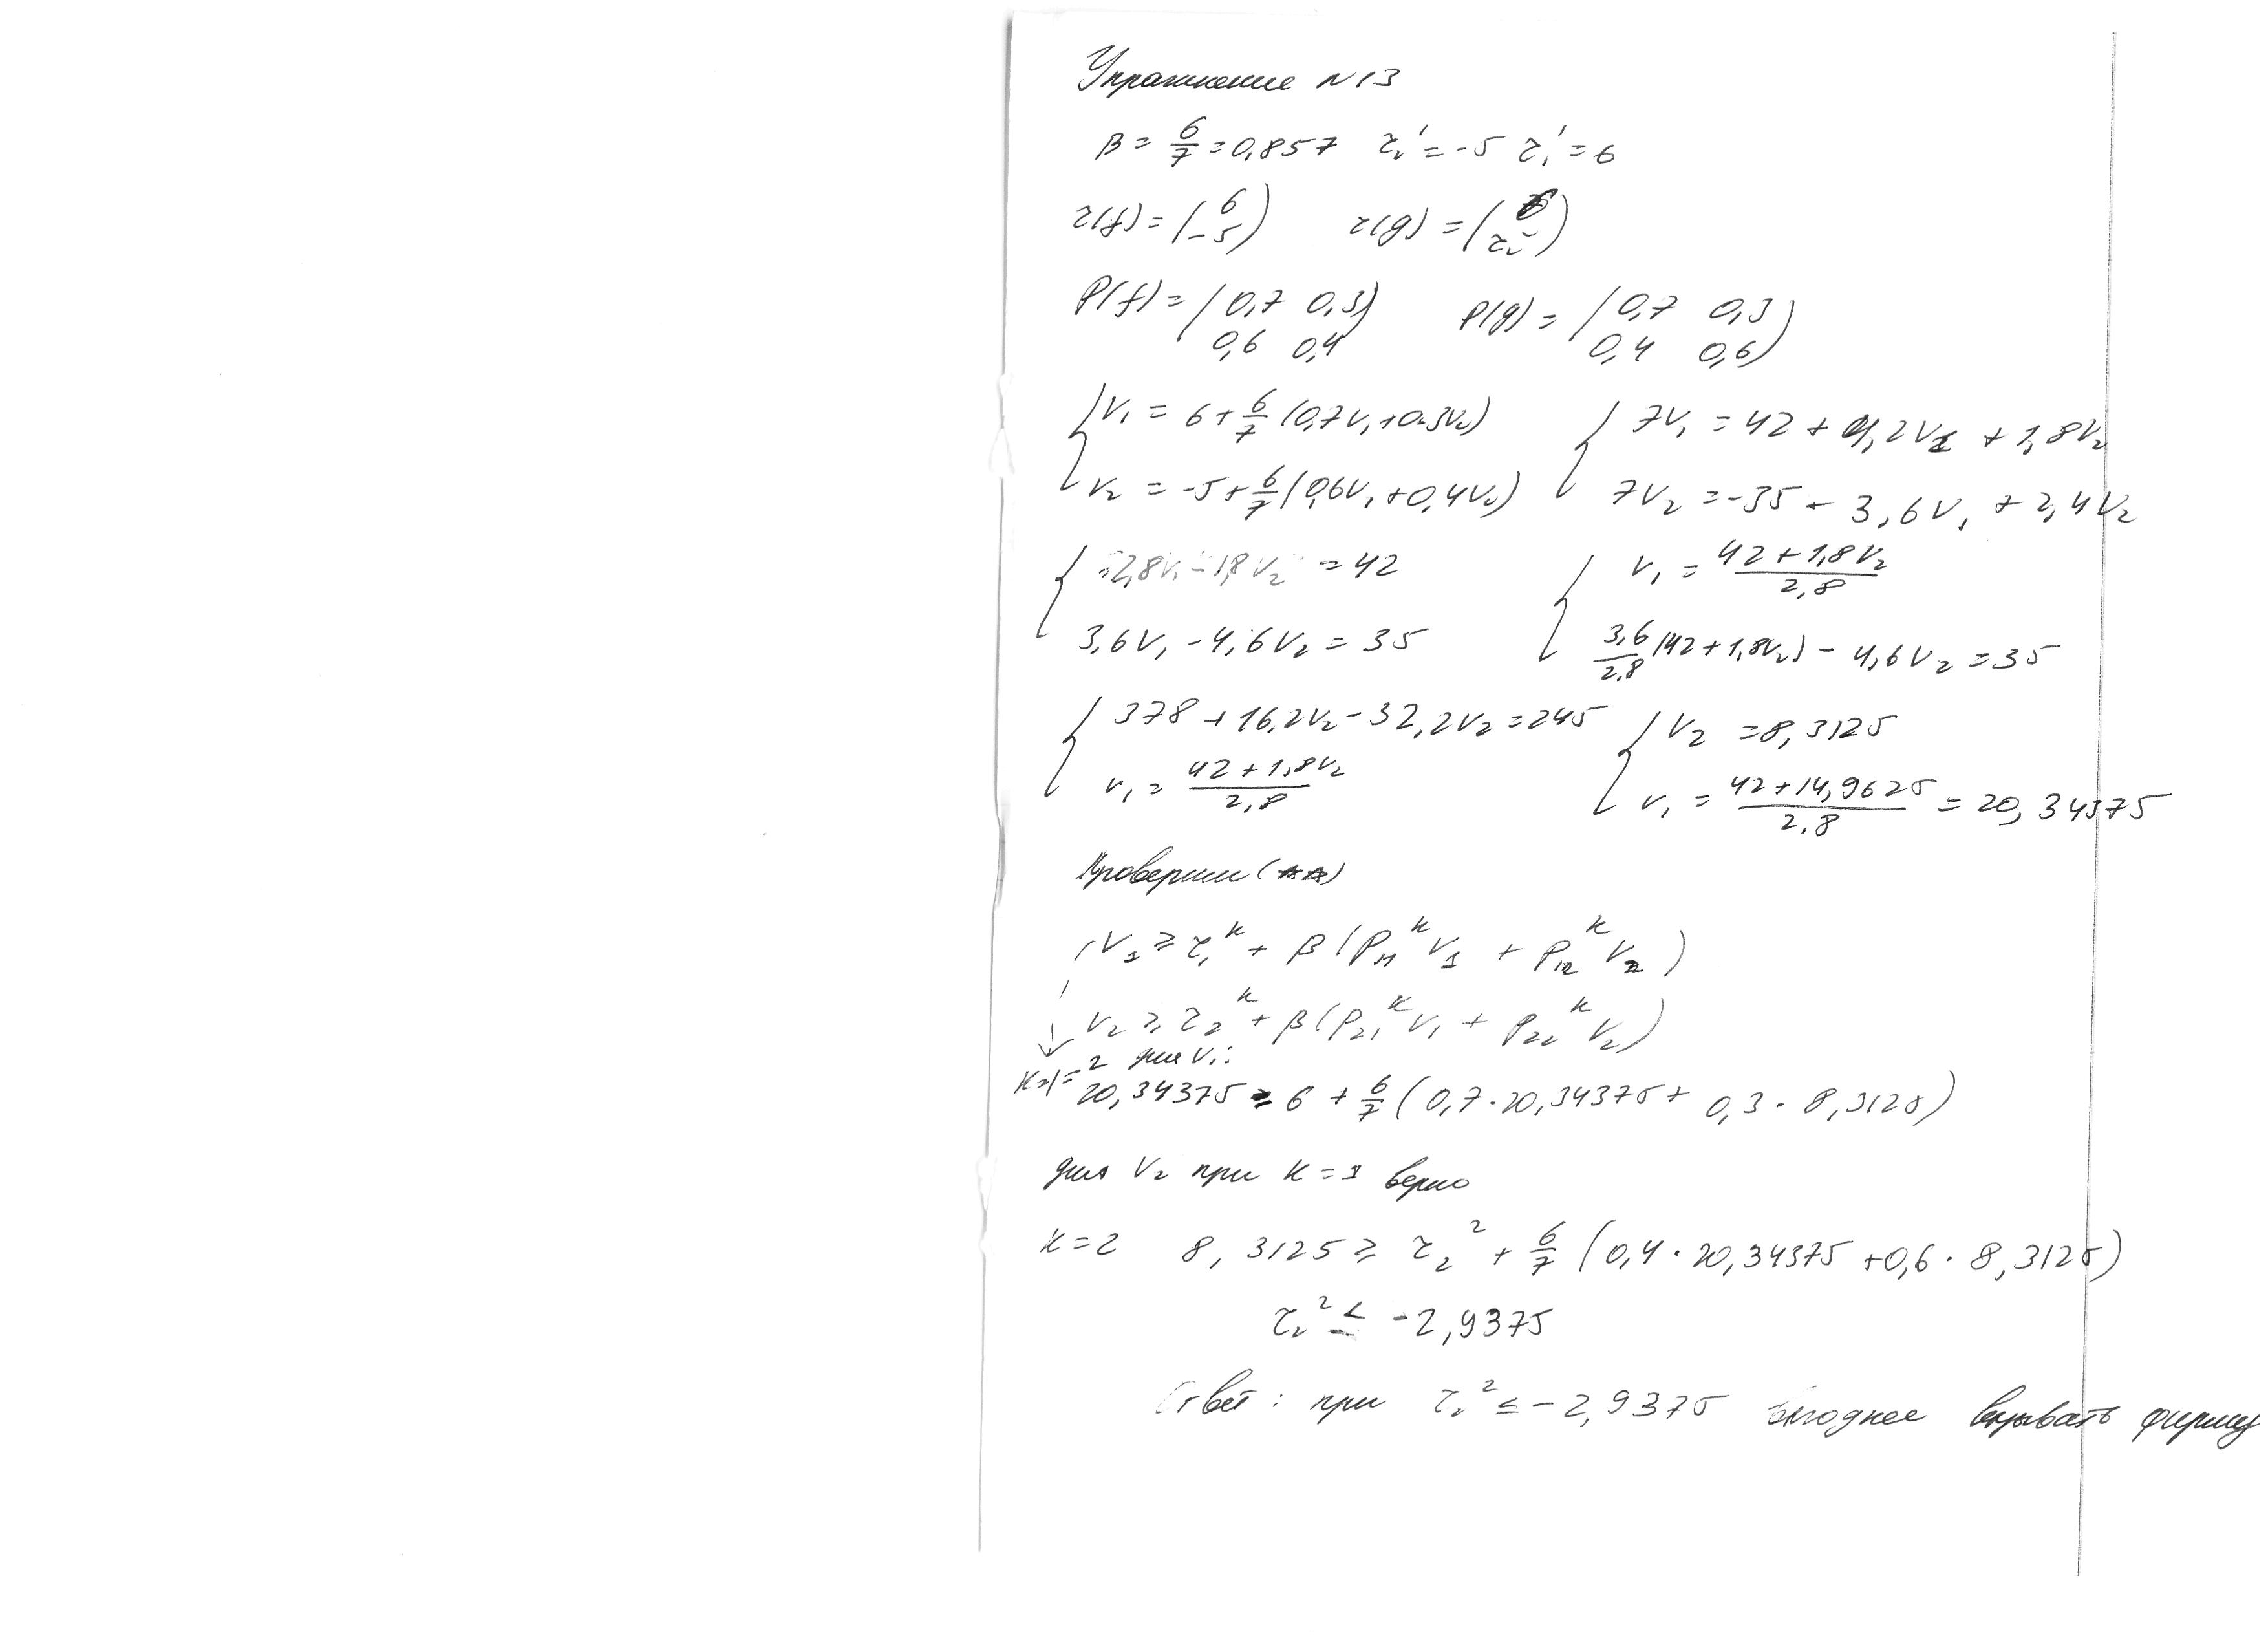 Упражнение N13
β = 6/7 = 0,857 r₂¹ = -5 r₁¹ = 6
r(f) = (6 -5) r(g) = (6 r₂²)
P(f) = (0,7 0,3 0,6 0,4) P(g) = (0,7 0,3 0,4 0,6)
{ V₁ = 6 + 6/7 (0,7V₁ + 0.3V₂) { 7V₁ = 42 + 4,2V₁ + 1,8V₂
V₂ = -5 + 6/7 (0,6V₁ + 0,4V₂) 7V₂ = -35 + 3,6V₁ + 2,4V₂
{ 2,8V₁ - 1,8V₂ = 42 { V₁ = (42 + 1,8V₂)/2,8
3,6V₁ - 4,6V₂ = 35 3,6/2,8 (42 + 1,8V₂) - 4,6V₂ = 35
{ 378 + 16,2V₂ - 32,2V₂ = 245 { V₂ = 8,3125
V₁ = (42 + 1,8V₂)/2,8 V₁ = (42 + 14,9625)/2,8 = 20,34375
Проверим (**)
{ V₁ ≥ r₁ᵏ + β (p₁₁ᵏ V₁ + p₁₂ᵏ V₂)
V₂ ≥ r₂ᵏ + β (p₂₁ᵏ V₁ + p₂₂ᵏ V₂)
к=1=2 для V₁:
20,34375 ≥ 6 + 6/7 (0,7·20,34375 + 0,3·8,3125)
для V₂ при к = 1 верно
к = 2 8,3125 ≥ r₂² + 6/7 (0,4·20,34375 + 0,6·8,3125)
r₂² ≤ -2,9375
Ответ: при r₂² ≤ -2,9375 выгоднее фирму